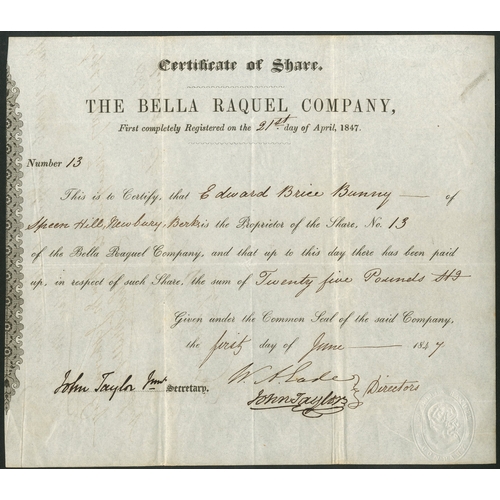 Certificate of Share.
THE BELLA RAQUEL COMPANY,
First completely Registered on the 21st day of April, 1847.
Number 13
This is to Certify, that Edward Brice Bunny of
Speen Hill, Newbury, Berks is the Proprietor of the Share, No. 13
of the Bella Raquel Company, and that up to this day there has been paid
up, in respect of such Share, the sum of Twenty five Pounds
Given under the Common Seal of the said Company,
the first day of June 1847
John Taylor Junr Secretary.
John Taylor Directors